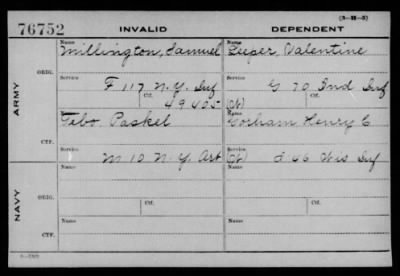 (3-H-3)
76752 INVALID DEPENDENT
Name Name
Millington, Samuel Leeper, Valentine
ORIG.
Service Service
F 117 N.Y. Inf G 70 Ind Inf
Ctf. 49405 Ctf.
ARMY
Name Name
Tebo Paskel Gorham Henry C
CTF.
Service Service
M 10 N.Y. Art I 46 Wis Inf
Name Name
ORIG.
Service Service
Ctf. Ctf.
NAVY
Name Name
CTF.